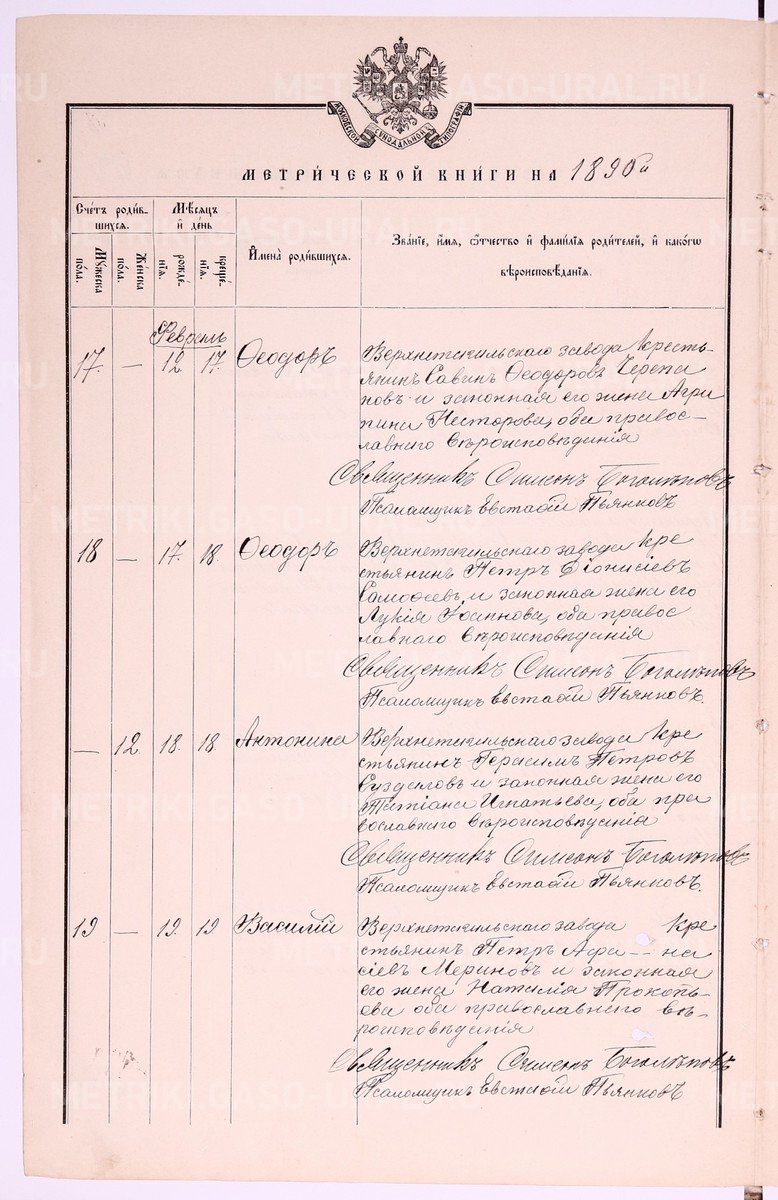 МОСКОВСКОЙ СѴНОДАЛЬНОЙ ТИПОГРАФІИ
МЕТРИ́ЧЕСКОЙ КНИ́ГИ НА 1890 й
Сче́тъ роди́в-
шихся.
Мѣ́сяцъ
и҆ де́нь
Мꙋ́жеска
пола.
Же́нска
по́ла.
рожде́-
нїѧ.
креще́-
нїѧ.
И҆мена̀ роди́вшихся.
Зва́нїе, и҆́мѧ, ѻ҆́тчество и҆ фами́лїѧ роди́телей, и҆ како́гѡ
вѣроисповѣ́данїѧ.
Февраль
17. — 12 17. Ѳеодоръ
Верхнетагильскаго завода кресть-
янинъ Савинъ Ѳеодоровъ Черепа
новъ и законная его жена Агри
пина Несторова, оба правос-
лавнаго вѣроисповѣданія
Священникъ Симеонъ Боголѣповъ
Псаломщикъ Евстафій Пьянковъ
18 — 17. 18. Ѳеодоръ
Верхнетагильскаго завода кре
стьянинъ Петръ Діонисіевъ
Самофеевъ и законная жена его
Лукія Іоаннова, оба правос
лавнаго вѣроисповѣданія
Священникъ Симеонъ Боголѣповъ
Псаломщикъ Евстафій Пьянковъ.
— 12 18. 18 Антонина
Верхнетагильскаго завода кре
стьянинъ Герасимъ Петровъ
Суздаловъ и законная жена его
Татіана Игнатьева, оба пра
вославнаго вѣроисповѣданія
Священникъ Симеонъ Боголѣповъ
Псаломщикъ Евстафій Пьянковъ.
19 — 19. 19 Василій
Верхнетагильскаго завода кре
стьянинъ Петръ Афа-- на
сіевъ Мериновъ и законная
его жена Наталія Прокопь-
ева оба православнаго вѣ-
роисповѣданія
Священникъ Симеонъ Боголѣповъ
Псаломщикъ Евстафій Пьянковъ.